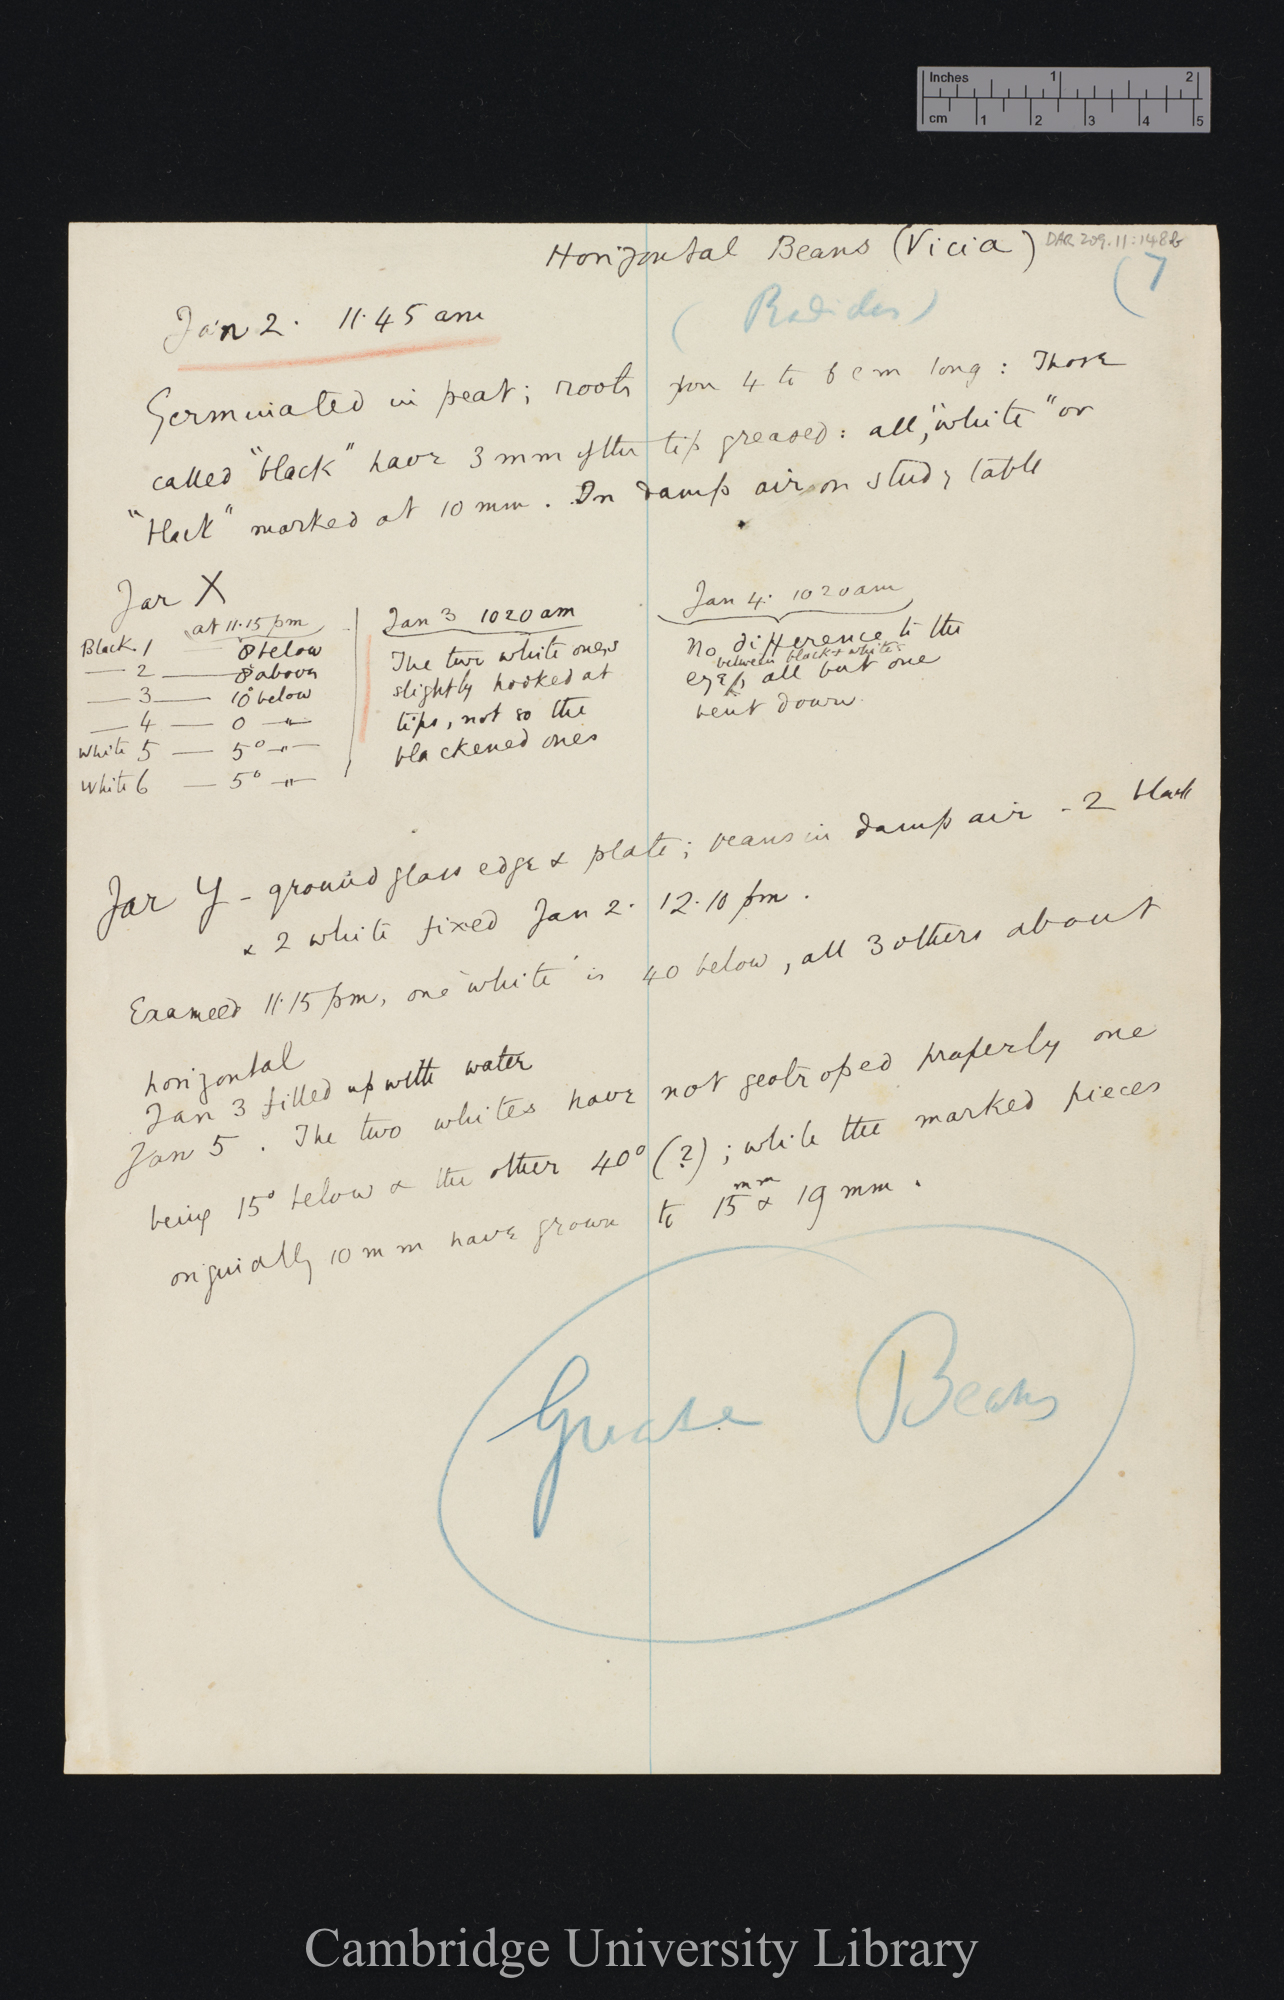 Inches 1 2
cm 1 2 3 4 5
Horizontal Beans (Vicia) DAR 209.11:148b
(7
Jan 2. 11.45 am
(Radicles)
Germinated in peat; roots from 4 to 6 cm long: Those
called "black" have 3 mm of the tip greased: all, "white" or
"black" marked at 10 mm. In damp air on study table
Jar X
at 11.15 pm
Black. 1 — 8° below
— 2 — 8° above
— 3 — 10° below
— 4 — 0 — " —
White 5 — 5° — " —
White 6 — 5° — " —
Jan 3 10 20 am
The two white ones
slightly hooked at
tips, not so the
blackened ones
Jan 4. 10 20 am
No difference to the
between black & whites
eye, all but one
bent down
Jar Y - ground glass edge & plate; beans in damp air - 2 black
& 2 white fixed Jan 2. 12.10 pm.
Examined 11.15 pm, one 'white' is 40 below, all 3 others about
horizontal
Jan 3 filled up with water
Jan 5. The two whites have not geotroped properly one
being 15° below & the other 40° (?); while the marked pieces
originally 10 mm have grown to 15 mm & 19 mm.
Grease Beans
Cambridge University Library